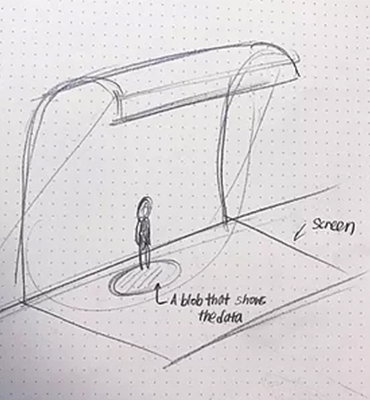 screen
A blob that shows
the data